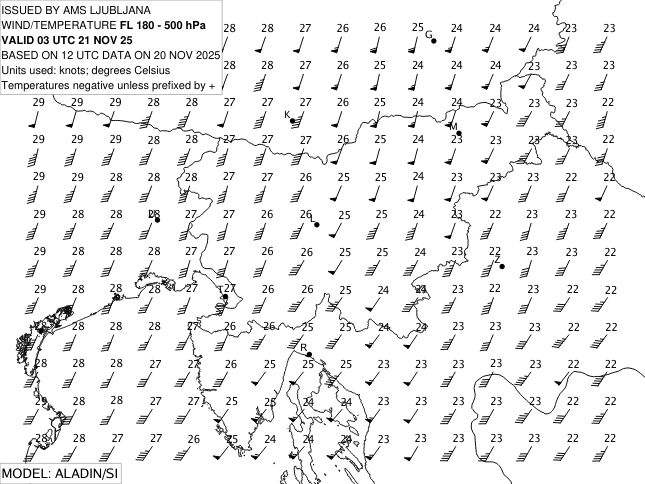 ISSUED BY AMS LJUBLJANA
WIND/TEMPERATURE FL 180 - 500 hPa
VALID 03 UTC 21 NOV 25
BASED ON 12 UTC DATA ON 20 NOV 2025
Units used: knots; degrees Celsius
Temperatures negative unless prefixed by +
28 28 27 26 26 25 24 24 24 23 23
G
28 28 27 26 25 24 24 24 23 23 23
29 29 29 28 28 27 27 27 26 25 24 24 23 23 23 22
K
M
29 29 29 28 28 27 27 27 26 25 24 23 23 23 23 23
29 29 29 28 28 27 27 26 25 25 24 23 22 23 23 22
29 28 28 28 27 27 26 26 25 25 24 23 22 23 23 22
L
29 28 28 28 27 27 26 26 25 25 24 23 22 23 23 22
Z
29 28 28 28 27 27 26 26 25 24 24 23 22 23 22 22
28 28 28 27 26 26 25 25 24 24 23 23 23 22 22
R
28 28 28 27 27 26 25 25 25 23 23 23 23 23 22 22
28 28 28 27 27 25 25 24 24 23 23 23 23 23 22 22
28 28 27 27 26 25 24 24 24 23 23 23 23 23 22 22
MODEL: ALADIN/SI